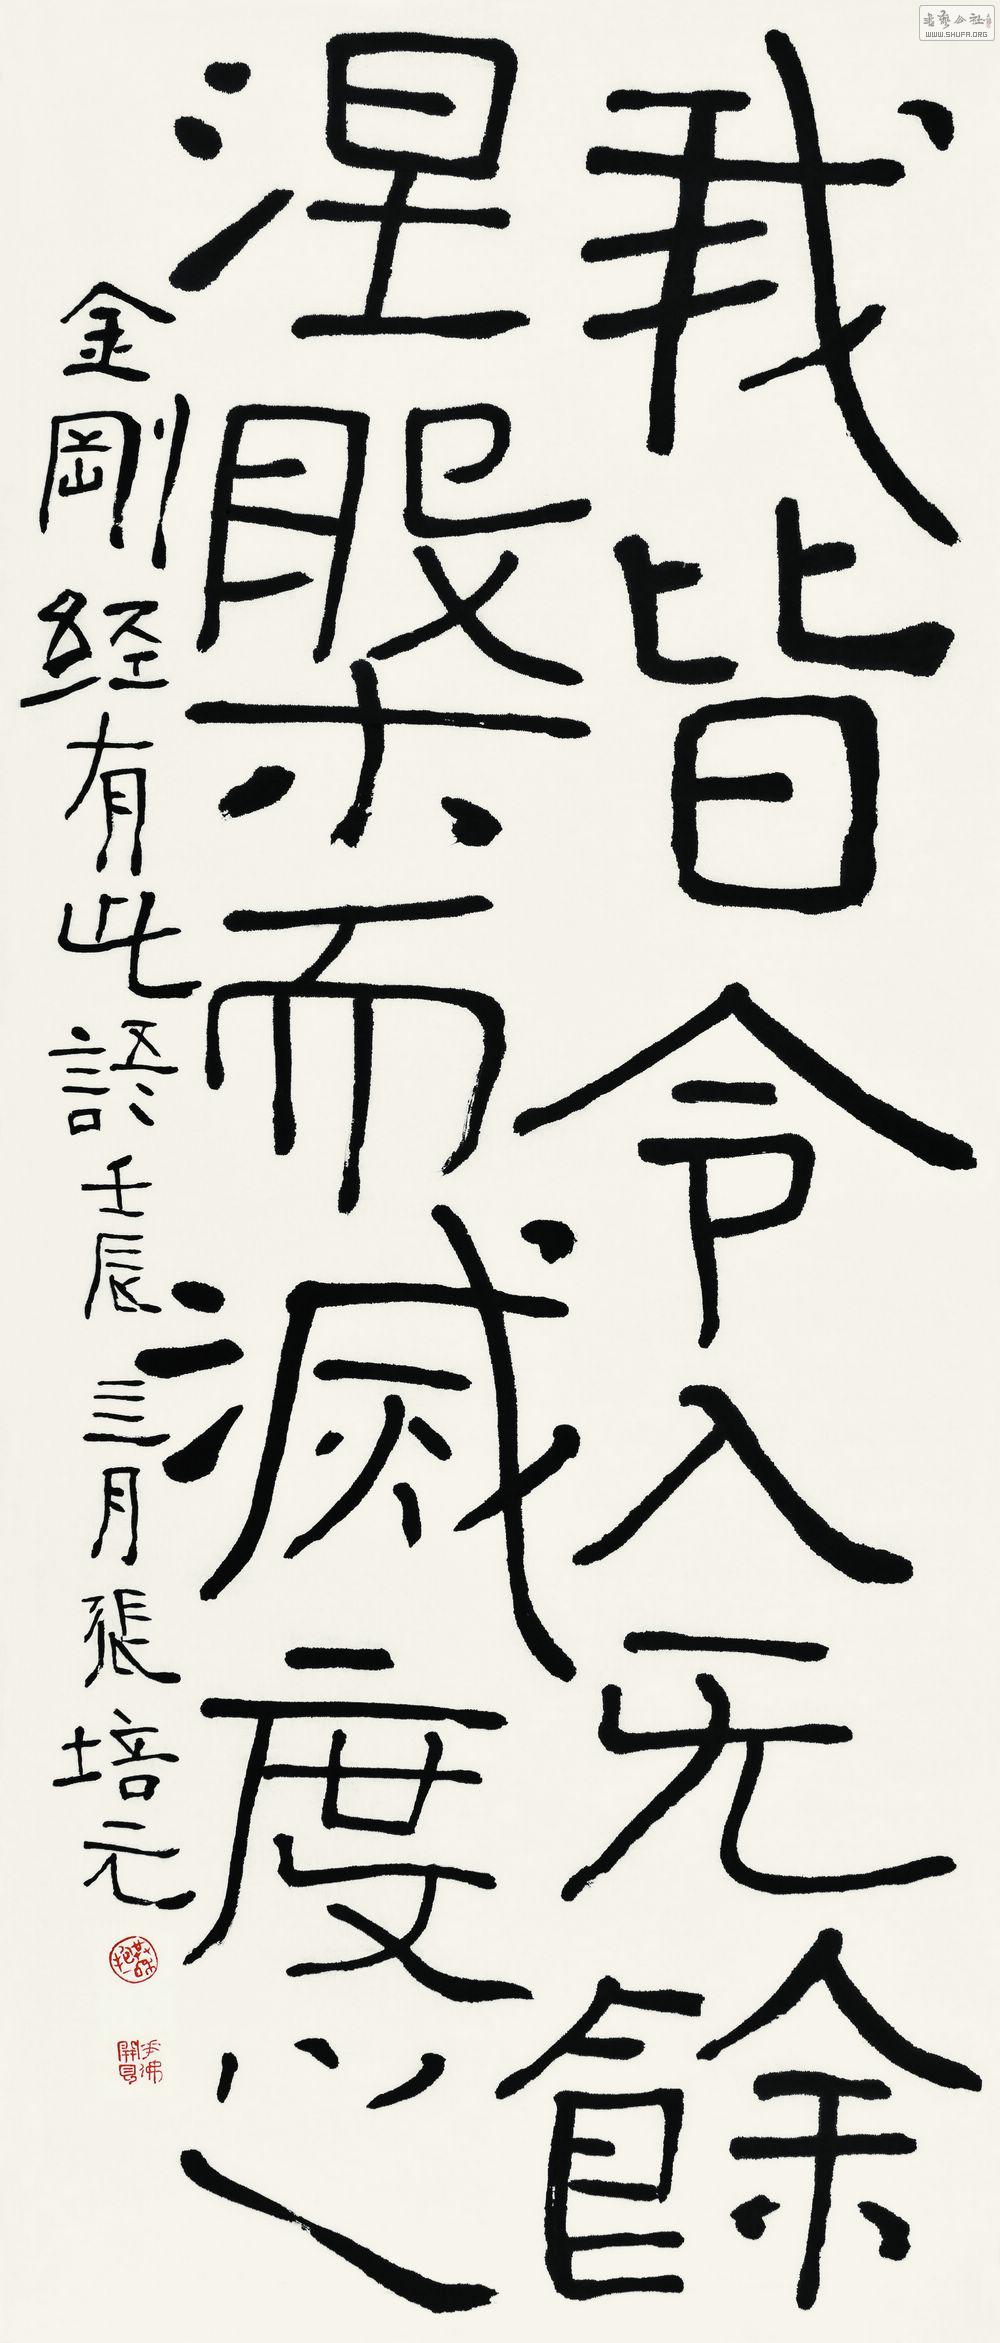 我皆令入无餘
涅槃而滅度之
金剛经有此語壬辰三月張培元
书艺公社
WWW.SHUFA.ORG